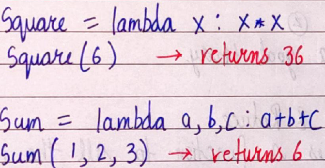 Square = lambda x : x*x
Square (6) → returns 36
Sum = lambda a, b, c : a+b+c
Sum ( 1, 2, 3) → returns 6